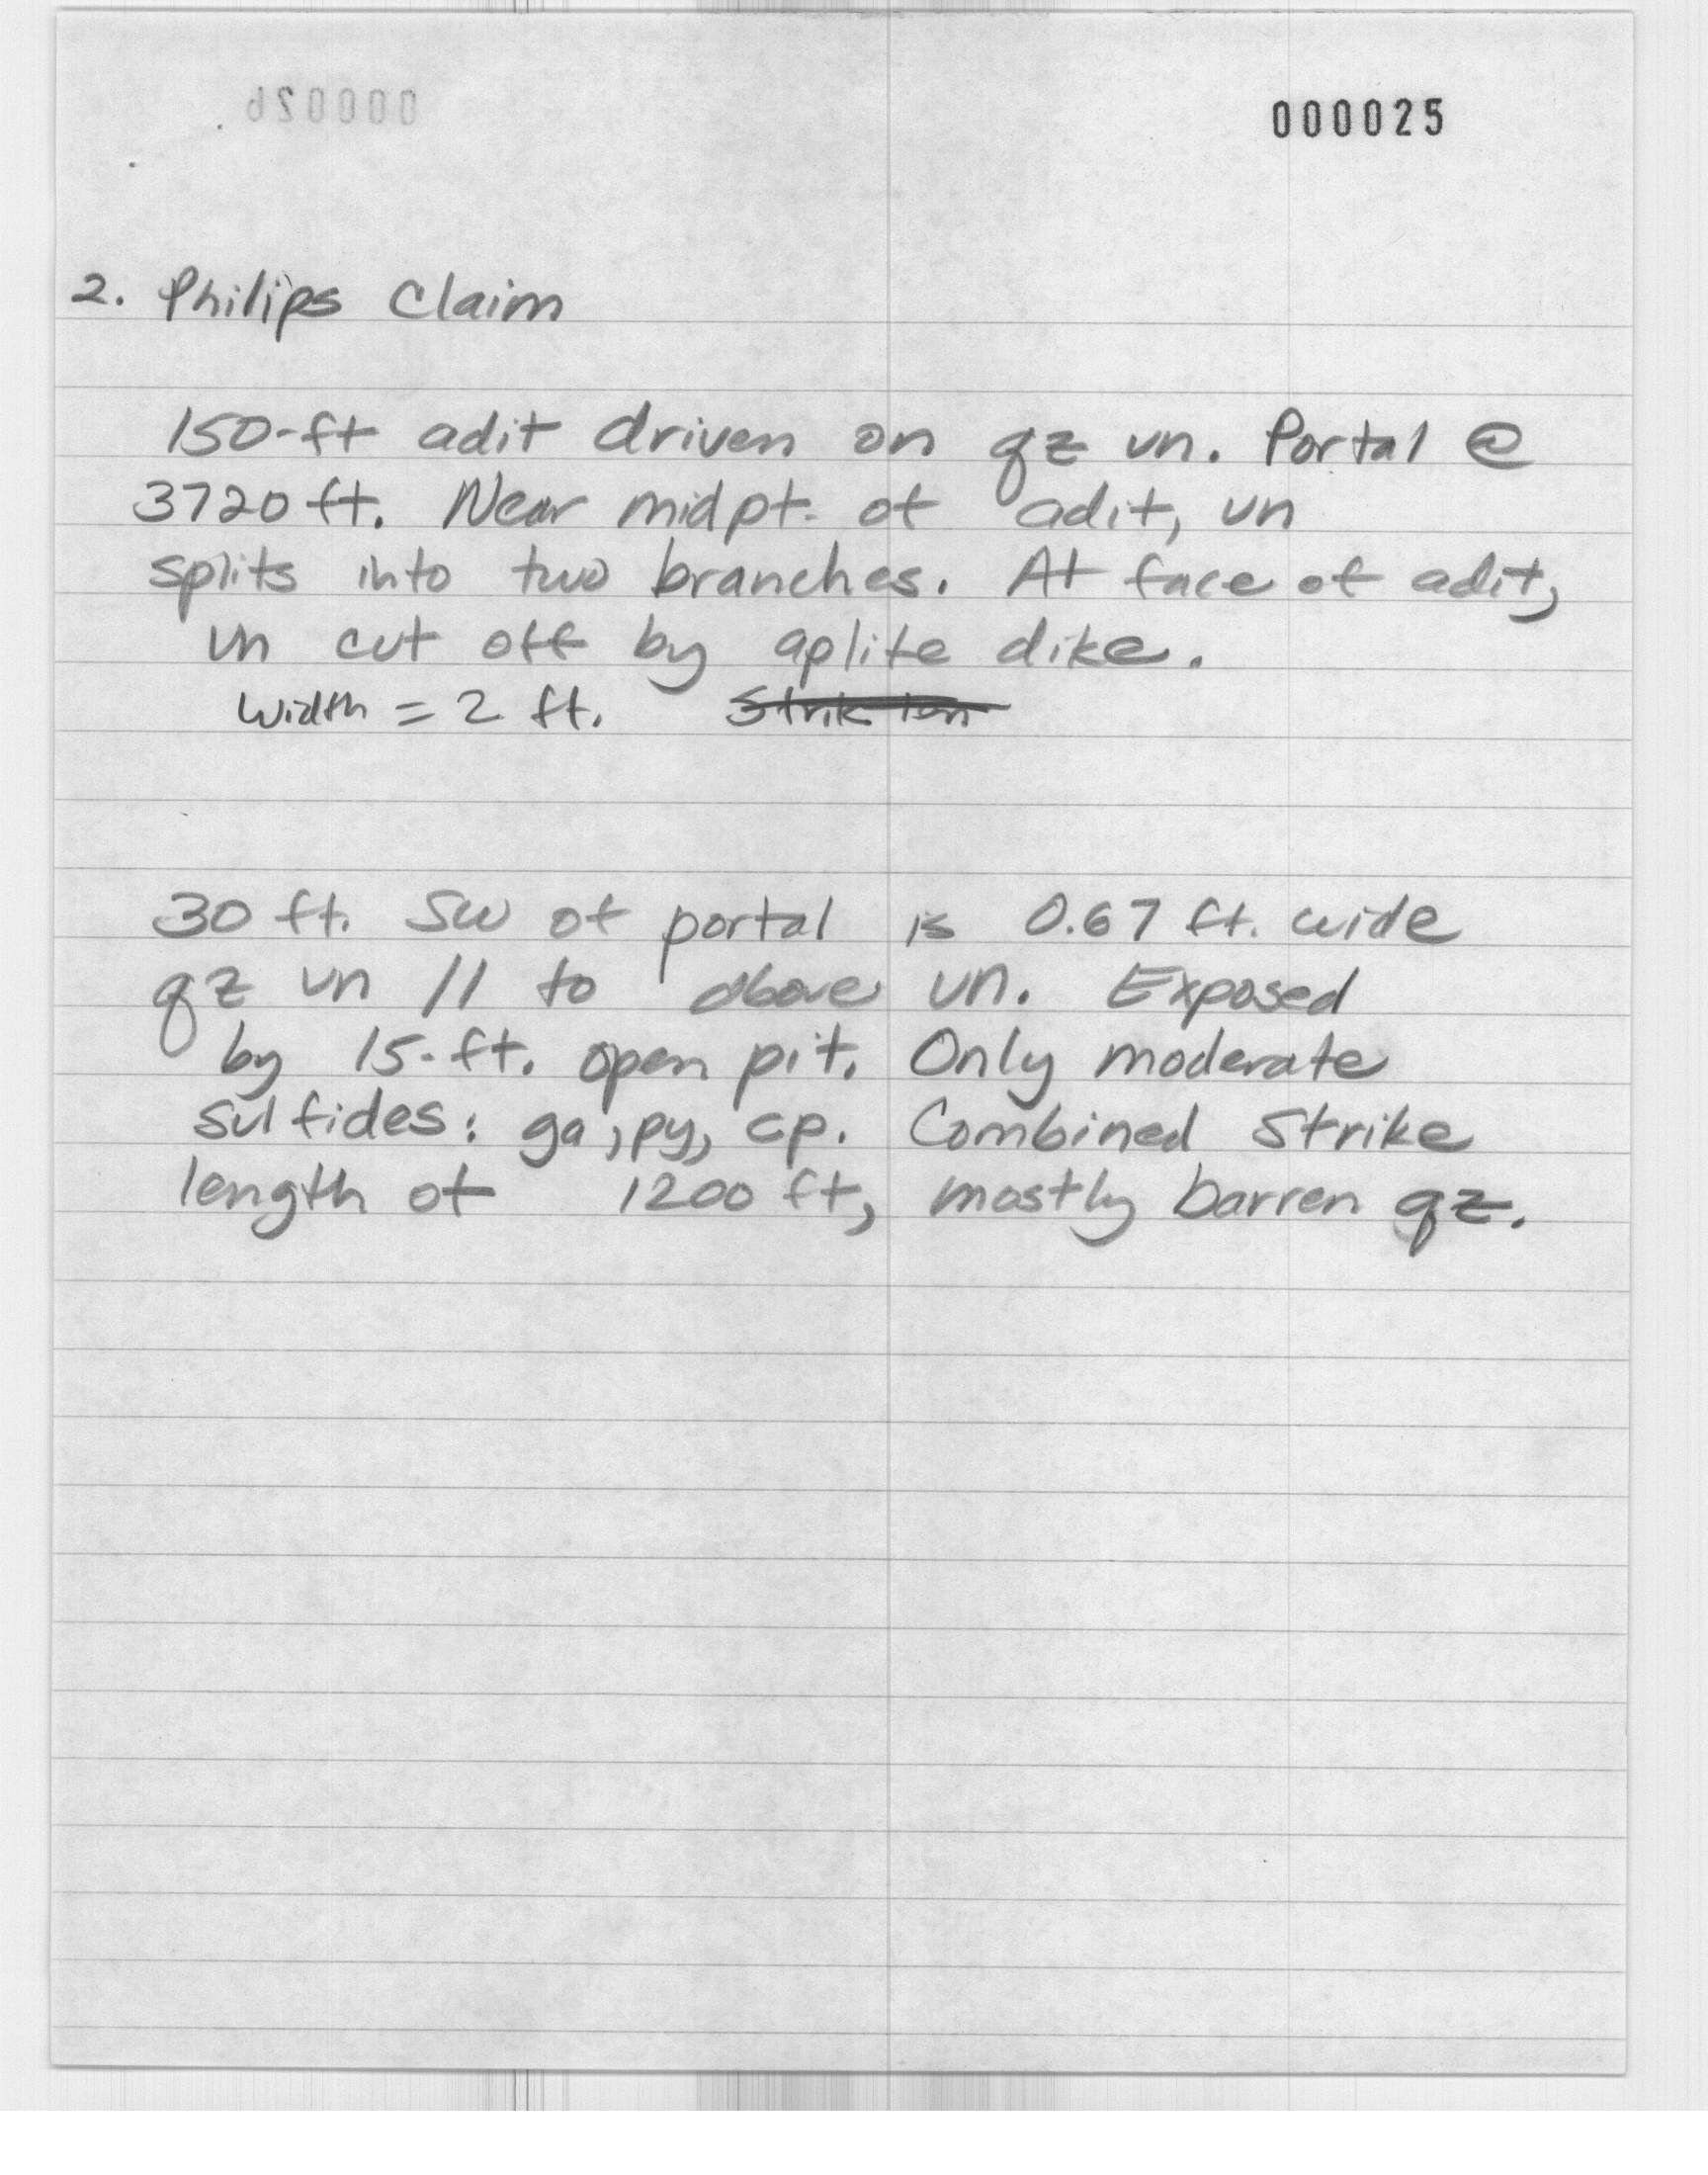 000025
2. Philips Claim
150-ft adit driven on qz vn. Portal @
3720 ft. Near midpt. of adit, vn
splits into two branches. At face of adit,
vn cut off by aplite dike.
Width = 2 ft.
30 ft. SW of portal is 0.67 ft. wide
qz vn // to above vn. Exposed
by 15-ft. open pit. Only moderate
sulfides: ga, py, cp. Combined strike
length of 1200 ft, mostly barren qz.